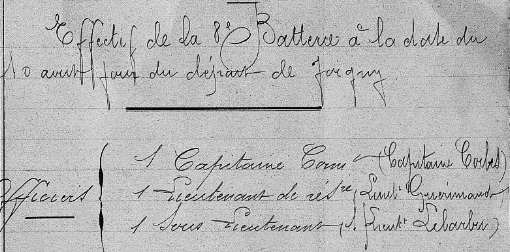 Effectif de la 8e Batterie à la date du
10 avout jour du départ de Joigny
Officiers
1 Capitaine Comt (Capitaine Corbes)
1 Lieutenant de résve (Lieutt
1 Sous Lieutenant (S. Lieutt Lebarbu)